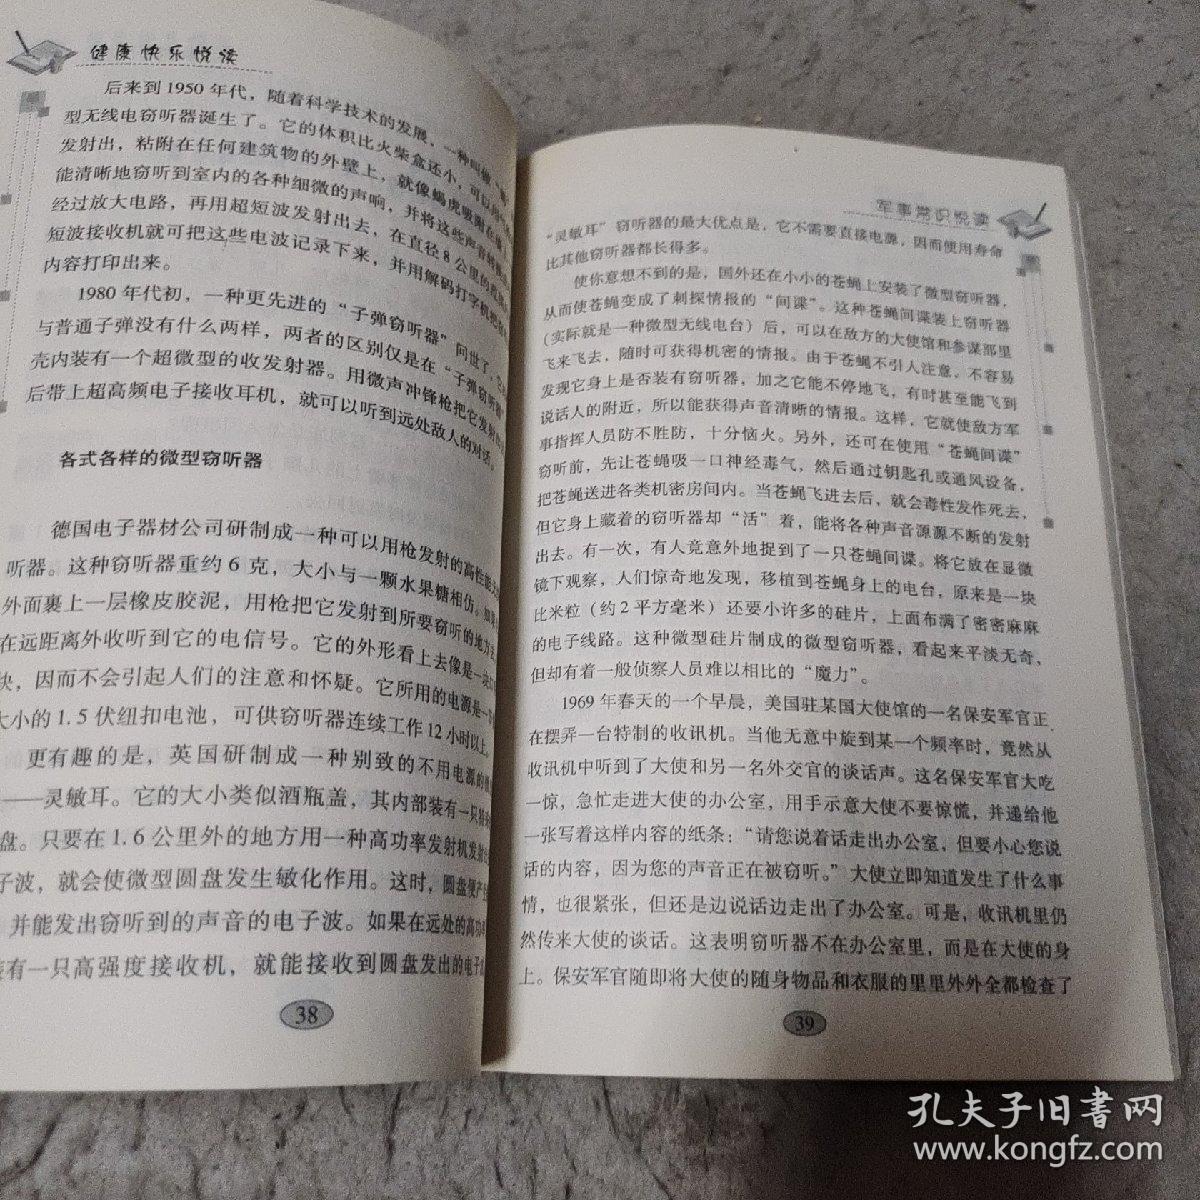 健康快乐悦读
后来到1950年代，随着科学技术的发展，一种叫做
型无线电窃听器诞生了。它的体积比火柴盒还小，可以用
发射出，粘附在任何建筑物的外壁上，就像蝎虎吸附在
能清晰地窃听到室内的各种细微的声响，并将这些声音
经过放大电路，再用超短波发射出去，在直径8公里的
短波接收机就可把这些电波记录下来，并用解码打字机把
内容打印出来。
1980年代初，一种更先进的“子弹窃听器”问世了，它
与普通子弹没有什么两样，两者的区别仅是在“子弹窃听器”
壳内装有一个超微型的收发射器。用微声冲锋枪把它发射
后带上超高频电子接收耳机，就可以听到远处敌人的对话。
各式各样的微型窃听器
德国电子器材公司研制成一种可以用枪发射的高性能
听器。这种窃听器重约6克，大小与一颗水果糖相仿。如果
外面裹上一层橡皮胶泥，用枪把它发射到所要窃听的地方
在远距离外收听到它的电信号。它的外形看上去像是一块
块，因而不会引起人们的注意和怀疑。它所用的电源是一
大小的1.5伏纽扣电池，可供窃听器连续工作12小时以上。
更有趣的是，英国研制成一种别致的不用电源的
——灵敏耳。它的大小类似酒瓶盖，其内部装有一只
盘。只要在1.6公里外的地方用一种高功率发射机发射
子波，就会使微型圆盘发生敏化作用。这时，圆盘便产生
并能发出窃听到的声音的电子波。如果在远处的高功率
装有一只高强度接收机，就能接收到圆盘发出的电子
38
军事常识悦读
“灵敏耳”窃听器的最大优点是，它不需要直接电源，因而使用寿命
比其他窃听器都长得多。
使你意想不到的是，国外还在小小的苍蝇上安装了微型窃听器，
从而使苍蝇变成了刺探情报的“间谍”。这种苍蝇间谍装上窃听器
（实际就是一种微型无线电台）后，可以在敌方的大使馆和参谋部里
飞来飞去，随时可获得机密的情报。由于苍蝇不引人注意，不容易
发现它身上是否装有窃听器，加之它能不停地飞，有时甚至能飞到
说话人的附近，所以能获得声音清晰的情报。这样，它就使敌方军
事指挥人员防不胜防，十分恼火。另外，还可在使用“苍蝇间谍”
窃听前，先让苍蝇吸一口神经毒气，然后通过钥匙孔或通风设备，
把苍蝇送进各类机密房间内。当苍蝇飞进去后，就会毒性发作死去，
但它身上藏着的窃听器却“活”着，能将各种声音源源不断的发射
出去。有一次，有人竟意外地捉到了一只苍蝇间谍。将它放在显微
镜下观察，人们惊奇地发现，移植到苍蝇身上的电台，原来是一块
比米粒（约2平方毫米）还要小许多的硅片，上面布满了密密麻麻
的电子线路。这种微型硅片制成的微型窃听器，看起来平淡无奇，
但却有着一般侦察人员难以相比的“魔力”。
1969年春天的一个早晨，美国驻某国大使馆的一名保安军官正
在摆弄一台特制的收讯机。当他无意中旋到某一个频率时，竟然从
收讯机中听到了大使和另一名外交官的谈话声。这名保安军官大吃
一惊，急忙走进大使的办公室，用手示意大使不要惊慌，并递给他
一张写着这样内容的纸条：“请您说着话走出办公室，但要小心您说
话的内容，因为您的声音正在被窃听。”大使立即知道发生了什么事
情，也很紧张，但还是边说话边走出了办公室。可是，收讯机里仍
然传来大使的谈话。这表明窃听器不在办公室里，而是在大使的身
上。保安军官随即将大使的随身物品和衣服的里里外外全都检查了
39
孔夫子旧书网
www.kongfz.com